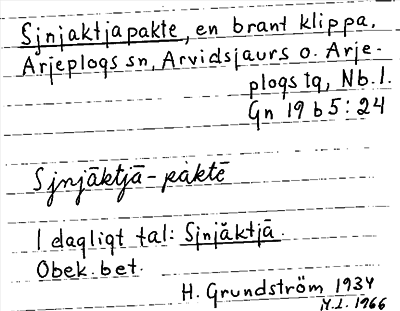 Sjnjaktjapakte, en brant klippa,
Arjeplogs sn, Arvidsjaurs o. Arje-
plogs tg, Nb. l.
Gn 19 b 5 : 24
Sjnjāktjā-pàktē
I dagligt tal: Sjnjăktjā.
Obek. bet.
H. Grundström 1934
M.L. 1966